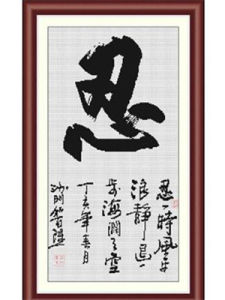 忍
忍一時風平
浪靜退一
步海闊天空
丁亥年春月
沙門